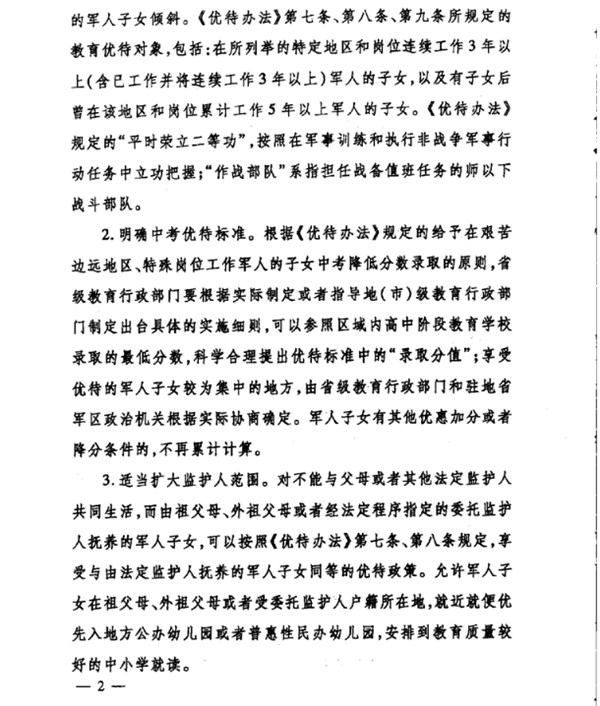 的军人子女倾斜。《优待办法》第七条、第八条、第九条所规定的
教育优待对象,包括:在所列举的特定地区和岗位连续工作3年以
上(含已工作并将连续工作3年以上)军人的子女,以及有子女后
曾在该地区和岗位累计工作5年以上军人的子女。《优待办法》
规定的“平时荣立二等功”,按照在军事训练和执行非战争军事行
动任务中立功把握;“作战部队”系指担任战备值班任务的师以下
战斗部队。
2.明确中考优待标准。根据《优待办法》规定的给予在艰苦
边远地区、特殊岗位工作军人的子女中考降低分数录取的原则,省
级教育行政部门要根据实际制定或者指导地(市)级教育行政部
门制定出台具体的实施细则,可以参照区域内高中阶段教育学校
录取的最低分数,科学合理提出优待标准中的“录取分值”;享受
优待的军人子女较为集中的地方,由省级教育行政部门和驻地省
军区政治机关根据实际协商确定。军人子女有其他优惠加分或者
降分条件的,不再累计计算。
3.适当扩大监护人范围。对不能与父母或者其他法定监护人
共同生活,而由祖父母、外祖父母或者经法定程序指定的委托监护
人抚养的军人子女,可以按照《优待办法》第七条、第八条规定,享
受与由法定监护人抚养的军人子女同等的优待政策。允许军人子
女在祖父母、外祖父母或者受委托监护人户籍所在地,就近就便优
先入地方公办幼儿园或者普惠性民办幼儿园,安排到教育质量较
好的中小学就读。
— 2 —